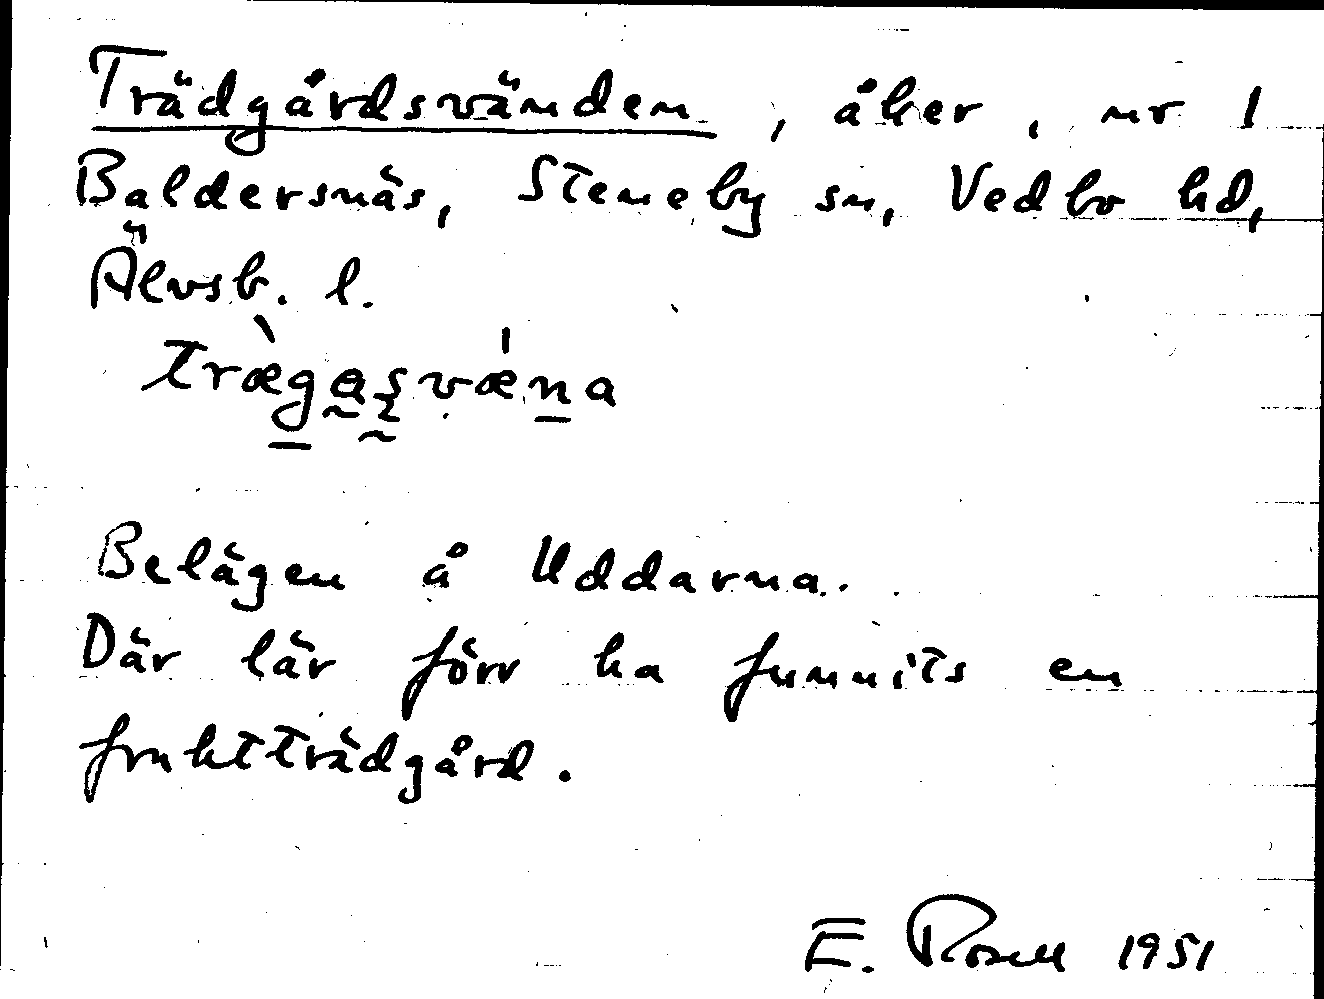 Trädgårdsvänden, åker, nr 1
Baldersnäs, Steneby sn, Vedbo hd,
Älvsb. l.
Belägen å Uddarna.
Där lär förr ha funnits en
fruktträdgård.
E. Rosell 1951